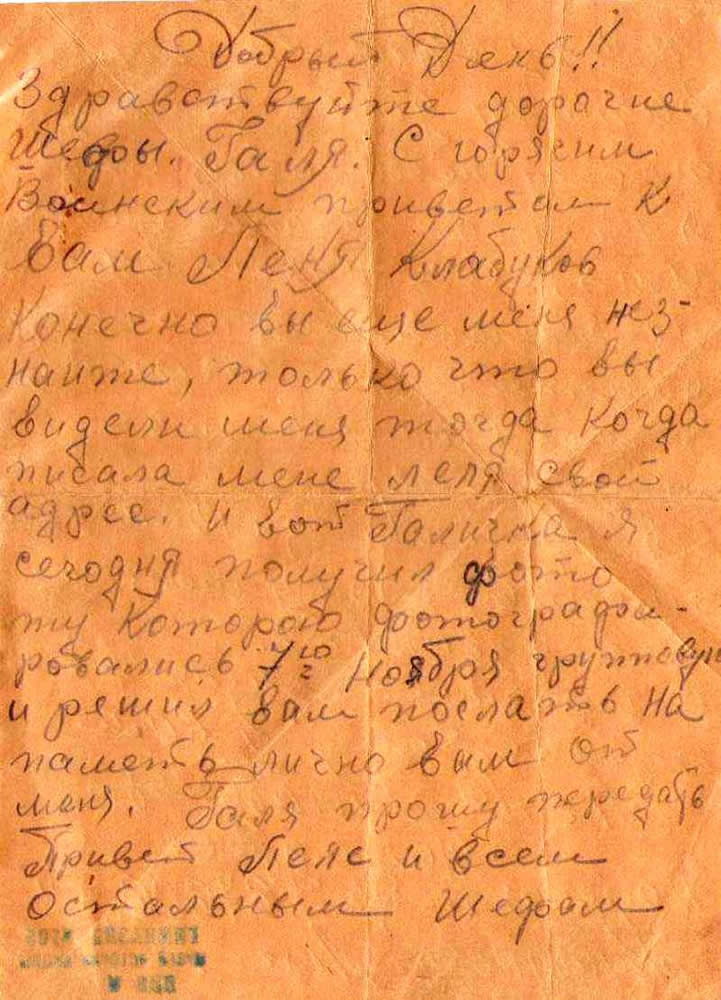 Добрый День!!
Здравствуйте дорогие
Шефы. Галя. С горячим
Воинским приветом к
Вам Леня Клабуков
Конечно вы еще меня нез-
наите, только что вы
видели меня тогда когда
писала мене леля свой
адрес. И вот Галичка я
сегодня получил фото
ту которою фотографи-
ровались 7го ноября групповую
и решил вам послать на
память лично вам от
меня. Галя прошу передать
Привет Леле и всем
Остальным Шефам